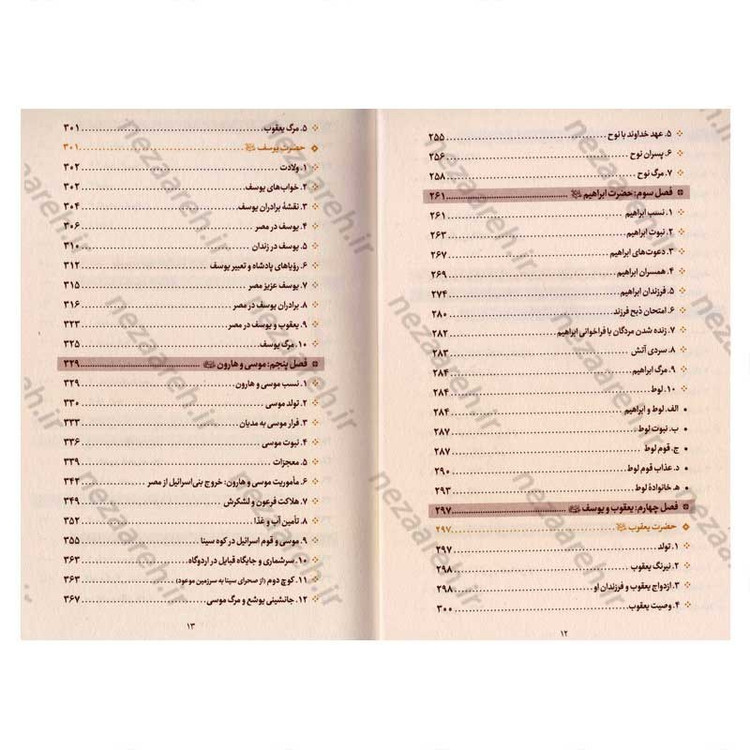 ۵. عهد خداوند با نوح ........ ۲۵۵
۶. پسران نوح ........ ۲۵۶
۷. مرگ نوح ........ ۲۵۸
فصل سوم: حضرت ابراهیم ........ ۲۶۱
۱. نسب ابراهیم ........ ۲۶۱
۲. نبوت ابراهیم ........ ۲۶۳
۳. دعوت‌های ابراهیم ........ ۲۶۷
۴. همسران ابراهیم ........ ۲۶۹
۵. فرزندان ابراهیم ........ ۲۷۴
۶. امتحان ذبح فرزند ........ ۲۸۰
۷. زنده شدن مردگان با فراخوانی ابراهیم ........ ۲۸۲
۸. سردی آتش ........ ۲۸۳
۹. مرگ ابراهیم ........ ۲۸۴
۱۰. لوط ........ ۲۸۴
الف. لوط و ابراهیم ........ ۲۸۴
ب. نبوت لوط ........ ۲۸۷
ج. قوم لوط ........ ۲۸۷
د. عذاب قوم لوط ........ ۲۹۰
هـ. خانوادهٔ لوط ........ ۲۹۳
فصل چهارم: یعقوب و یوسف ........ ۲۹۷
حضرت یعقوب ........ ۲۹۷
۱. تولد ........ ۲۹۷
۲. نیرنگ یعقوب ........ ۲۹۸
۳. ازدواج یعقوب و فرزندان او ........ ۲۹۸
۴. وصیت یعقوب ........ ۳۰۰
۱۲
۵. مرگ یعقوب ........ ۳۰۱
حضرت یوسف ........ ۳۰۱
۱. ولادت ........ ۳۰۲
۲. خواب‌های یوسف ........ ۳۰۲
۳. نقشهٔ برادران یوسف ........ ۳۰۴
۴. یوسف در مصر ........ ۳۰۶
۵. یوسف در زندان ........ ۳۱۰
۶. رؤیاهای پادشاه و تعبیر یوسف ........ ۳۱۲
۷. یوسف عزیز مصر ........ ۳۱۵
۸. برادران یوسف در مصر ........ ۳۱۶
۹. یعقوب و یوسف در مصر ........ ۳۲۳
۱۰. مرگ یوسف ........ ۳۲۵
فصل پنجم: موسی و هارون ........ ۳۲۹
۱. نسب موسی و هارون ........ ۳۲۹
۲. تولد موسی ........ ۳۳۰
۳. فرار موسی به مدیان ........ ۳۳۳
۴. نبوت موسی ........ ۳۳۶
۵. معجزات ........ ۳۳۹
۶. مأموریت موسی و هارون: خروج بنی‌اسرائیل از مصر ........ ۳۴۲
۷. هلاکت فرعون و لشکرش ........ ۳۴۹
۸. تأمین آب و غذا ........ ۳۵۲
۹. موسی و قوم اسرائیل در کوه سینا ........ ۳۵۵
۱۰. سرشماری و جایگاه قبایل در اردوگاه ........ ۳۶۳
۱۱. کوچ دوم (از صحرای سینا به سرزمین موعود) ........ ۳۶۳
۱۲. جانشینی یوشع و مرگ موسی ........ ۳۶۷
۱۳
nezaareh.ir